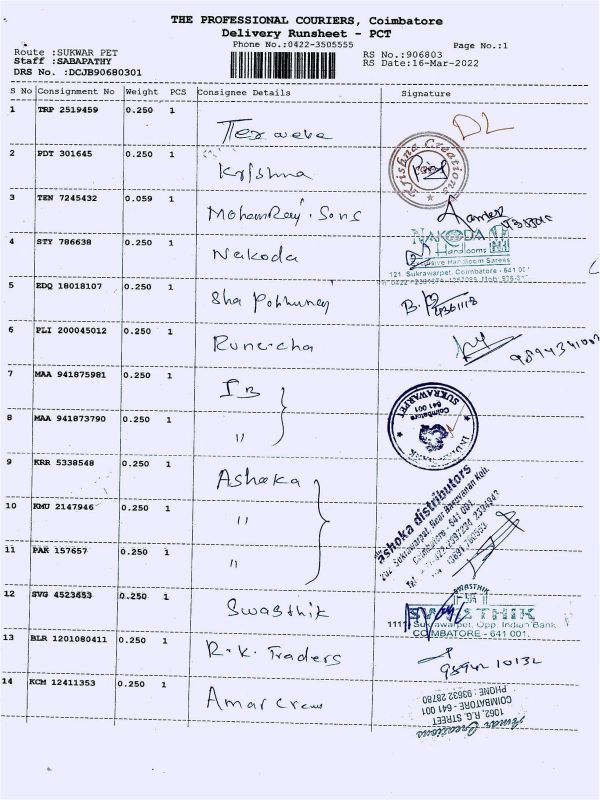 THE PROFESSIONAL COURIERS, Coimbatore
Delivery Runsheet - PCT
Phone No.:0422-3505555 Page No.:1
Route :SUKWAR PET RS No.:906803
Staff :SABAPATHY RS Date:16-Mar-2022
DRS No. :DCJB90680301
S No Consignment No Weight PCS Consignee Details Signature
1 TRP 2519459 0.250 1 DL
2 PDT 301645 0.250 1 Krishna Krishna Creations
3 TEN 7245432 0.059 1 Sons
4 STY 786638 0.250 1 Nakoda NAKODA
Handlooms
Exclusive Handloom Sarees
121, Sukrawarpet, Coimbatore - 641 0
5 EDQ 18018107 0.250 1 Sha
6 PLI 200045012 0.250 1
7 MAA 941875981 0.250 1 IB SUKRAWARPET
Coimbatore
641 001
8 MAA 941873790 0.250 1 "
9 KRR 5338548 0.250 1 Ashoka ashoka distributors
10 KMU 2147946 0.250 1 "
Coimbatore - 641 001
11 PAK 157657 0.250 1 "
12 SVG 4523653 0.250 1 Swasthik SWASTHIK
Sukrawarpet, Opp. Indian Bank
COIMBATORE - 641 001.
13 BLR 1201080411 0.250 1 R.K. Traders
14 KCM 12411353 0.250 1 Amar Crea
Amar Creations
1062, R.G. STREET
COIMBATORE - 641 001
PHONE : 93632 28780